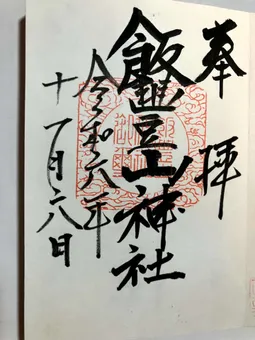 奉拝
飯豊山神社
令和六年
十一月六日